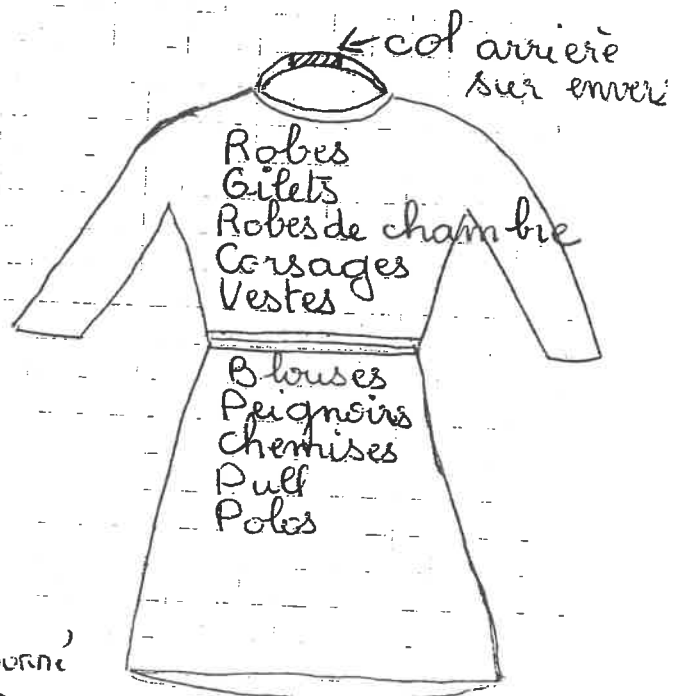 col arriere
sur enver
Robes
Gilets
Robes de chambre
Corsages
Vestes
Blouses
Peignoirs
Chemises
Pull
Polos